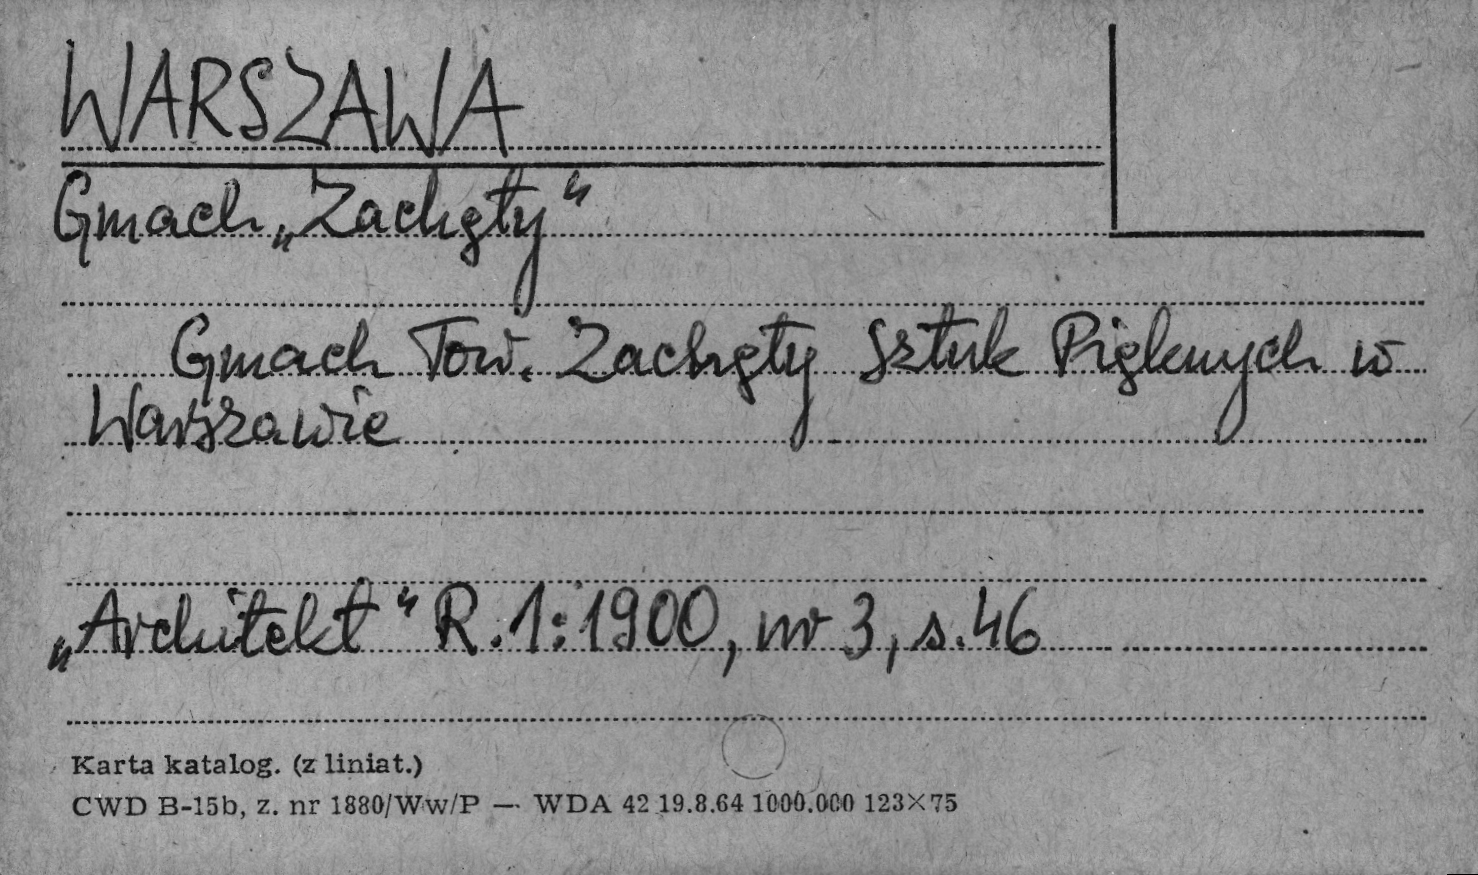 WARSZAWA
Gmach „Zachęty"
Gmach Tow. Zachęty Sztuk Pięknych w
Warszawie
„Architekt" R.1:1900, nr 3, s.46
Karta katalog. (z liniat.)
CWD B-15b, z. nr 1880/Ww/P — WDA 42 19.8.64 1000.000 123×75